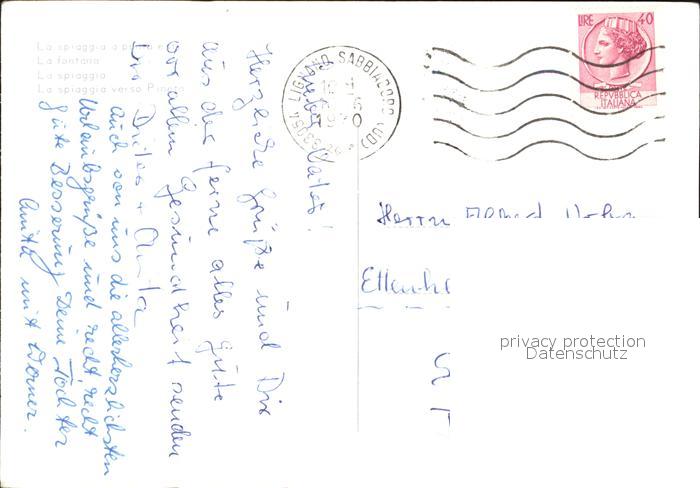 La spiaggia
La fontana
La spiaggia
La spiaggia verso Pineta
LIRE 40
POSTE
REPVBBLICA
ITALIANA
33054 LIGNANO SABBIADORO (UD)
1970
Vater!
Herzliche Grüße und Dir
aus der Ferne alles gute
vor allem Gesundheit senden
Dir Dieter + Anita
auch von uns die allerherzlichsten
Urlaubsgrüße und recht, recht
gute Besserung Deine Tochter
Anita mit Werner.
Herrn
privacy protection
Datenschutz